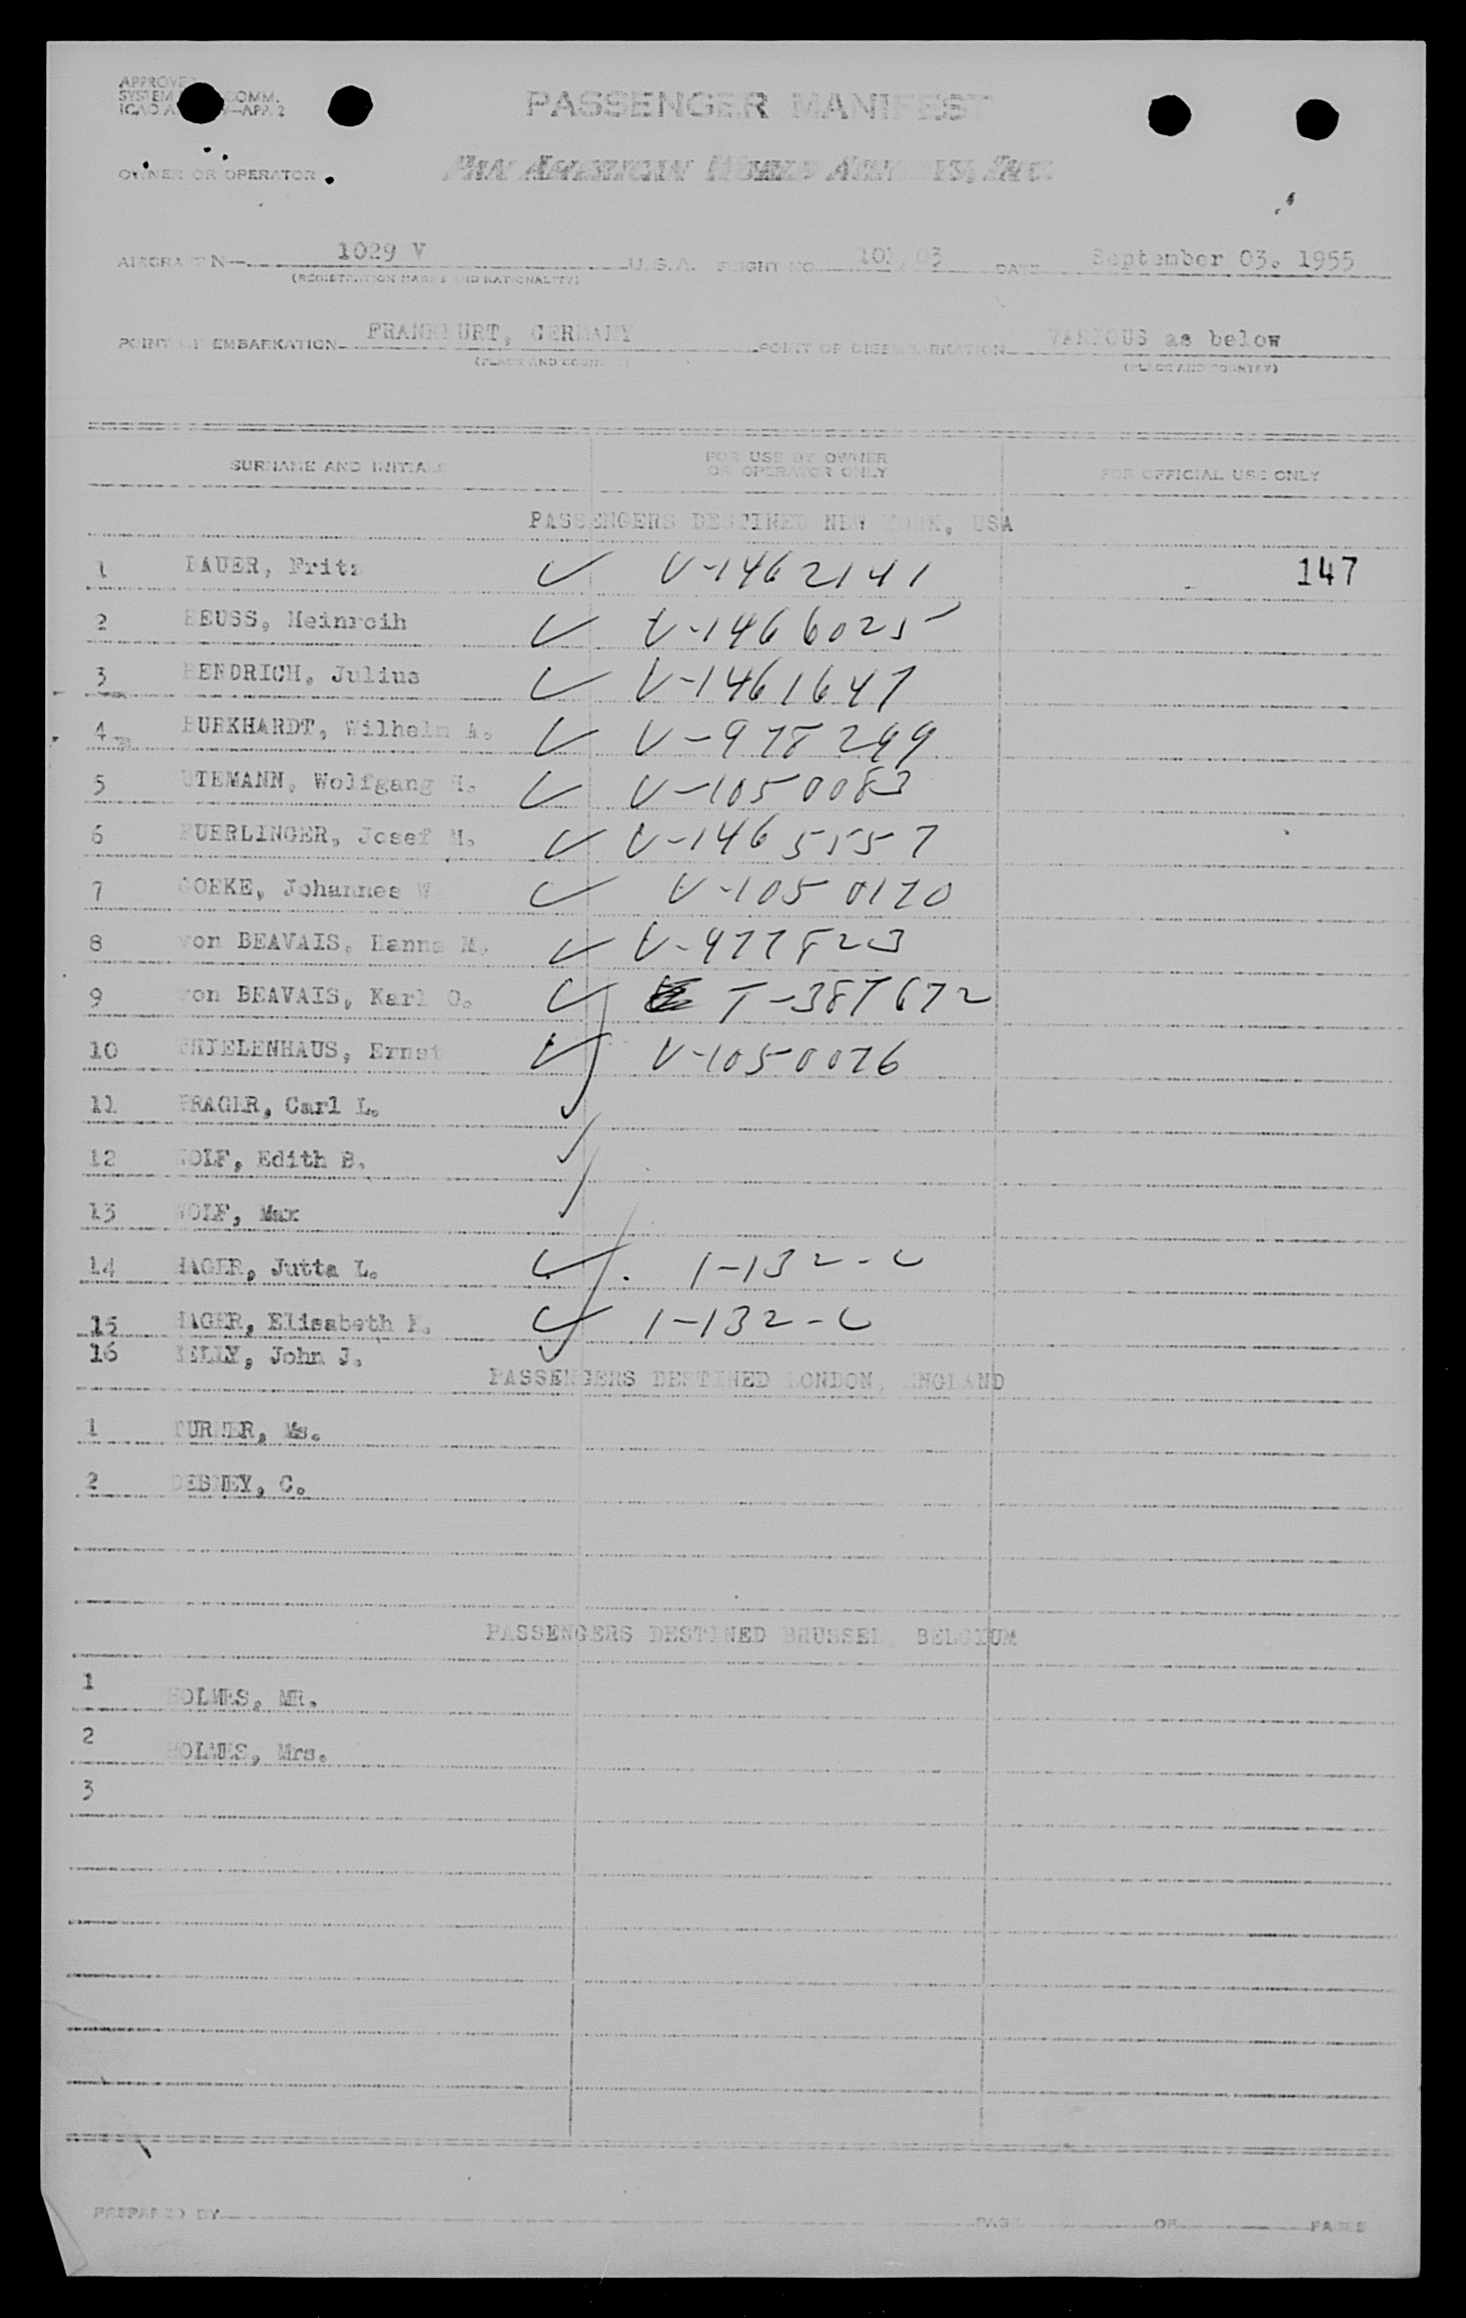 PASSENGER MANIFEST
OWNER OR OPERATOR
PAN AMERICAN WORLD AIRWAYS, INC.
AIRCRAFT N— 1029 V U.S.A. FLIGHT NO. 101/03 DATE September 03. 1955
(REGISTRATION MARKS AND NATIONALITY)
POINT OF EMBARKATION FRANKFURT, GERMANY POINT OF DISEMBARKATION VARIOUS as below
(PLACE AND COUNTRY) (PLACE AND COUNTRY)
SURNAME AND INITIALS FOR USE BY OWNER OR OPERATOR ONLY FOR OFFICIAL USE ONLY
PASSENGERS DESTINED NEW YORK, USA
1 BAUER, Fritz ✓ V-1462141 147
2 BEUSS, Heinrcih ✓ V-1466025
3 BENDRICH, Julius ✓ V-1461647
4 BURKHARDT, Wilhelm A. ✓ V-978299
5 UTEMANN, Wolfgang H. ✓ V-1050083
6 FUERLINGER, Josef M. ✓ V-1465157
7 GOEKE, Johannes W ✓ V-1050170
8 von BEAVAIS, Hanna M. ✓ V-977823
9 von BEAVAIS, Karl O. ✓ T-387672
10 THIELENHAUS, Ernst ✓ V-1050076
11 PRAGER, Carl L. ✓
12 WOLF, Edith B. ✓
13 WOLF, Max ✓
14 HAGER, Jutta L. ✓ 1-132-C
15 HAGER, Elisabeth F. ✓ 1-132-C
16 KELLY, John J. ✓
PASSENGERS DESTINED LONDON, ENGLAND
1 TURNER, Ms.
2 DEBNEY, C.
PASSENGERS DESTINED BRUSSEL, BELGIUM
1 HOLMES, MR.
2 HOLMES, Mrs.
3
PREPARED BY PAGE OF PAGES